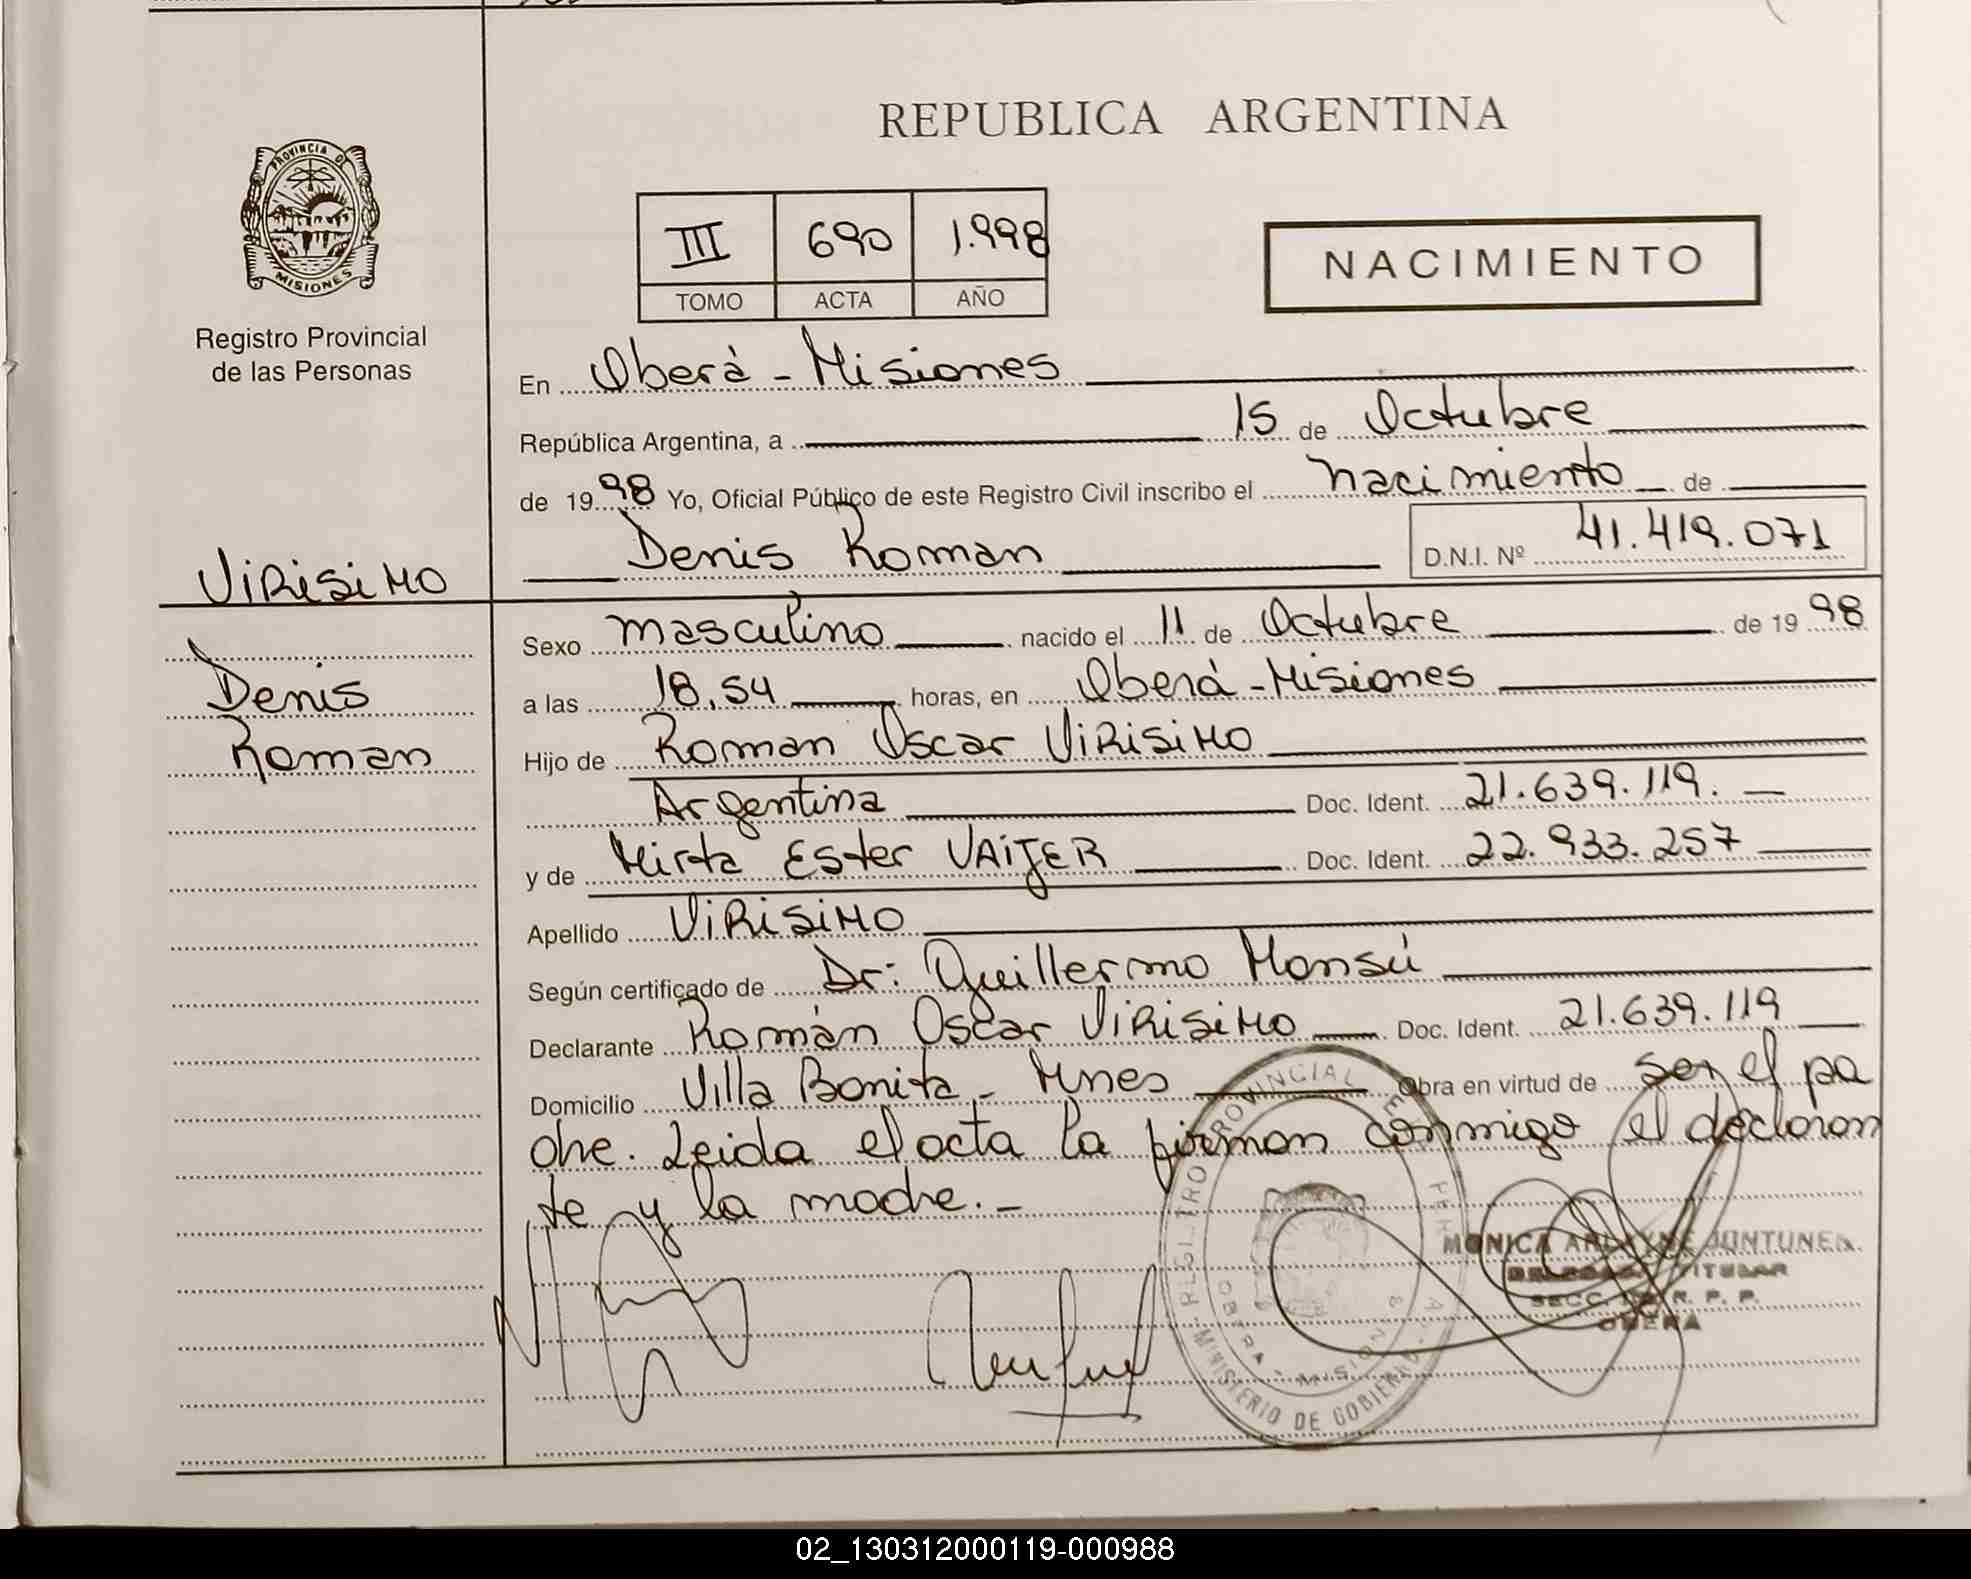 REPUBLICA ARGENTINA
PROVINCIA DE
MISIONES
Registro Provincial
de las Personas
III 690 1.998
TOMO ACTA AÑO
NACIMIENTO
En Oberà - Misiones
República Argentina, a 15 de Octubre
de 1998 Yo, Oficial Público de este Registro Civil inscribo el nacimiento de
Denis Roman D.N.I. Nº 41.419.071
VIRISIMO
Denis
Roman
Sexo masculino nacido el 11 de Octubre de 1998
a las 18,54 horas, en Oberà - Misiones
Hijo de Roman Oscar VIRISIMO
Argentina Doc. Ident. 21.639.119. _
y de Mirta Ester VAIJER Doc. Ident. 22.933.257
Apellido VIRISIMO
Según certificado de Dr: Guillermo Monsú
Declarante Román Oscar VIRISIMO Doc. Ident. 21.639.119
Domicilio Villa Bonita - Mnes Obra en virtud de ser el pa
dre. Leida el acta la firman conmigo el declaran
te y la madre. _
REGISTRO PROVINCIAL
MINISTERIO DE GOBIERNO
OBERA - MISIONES
MONICA
TITULAR
SECC. R. P. P.
OBERA
02_130312000119-000988